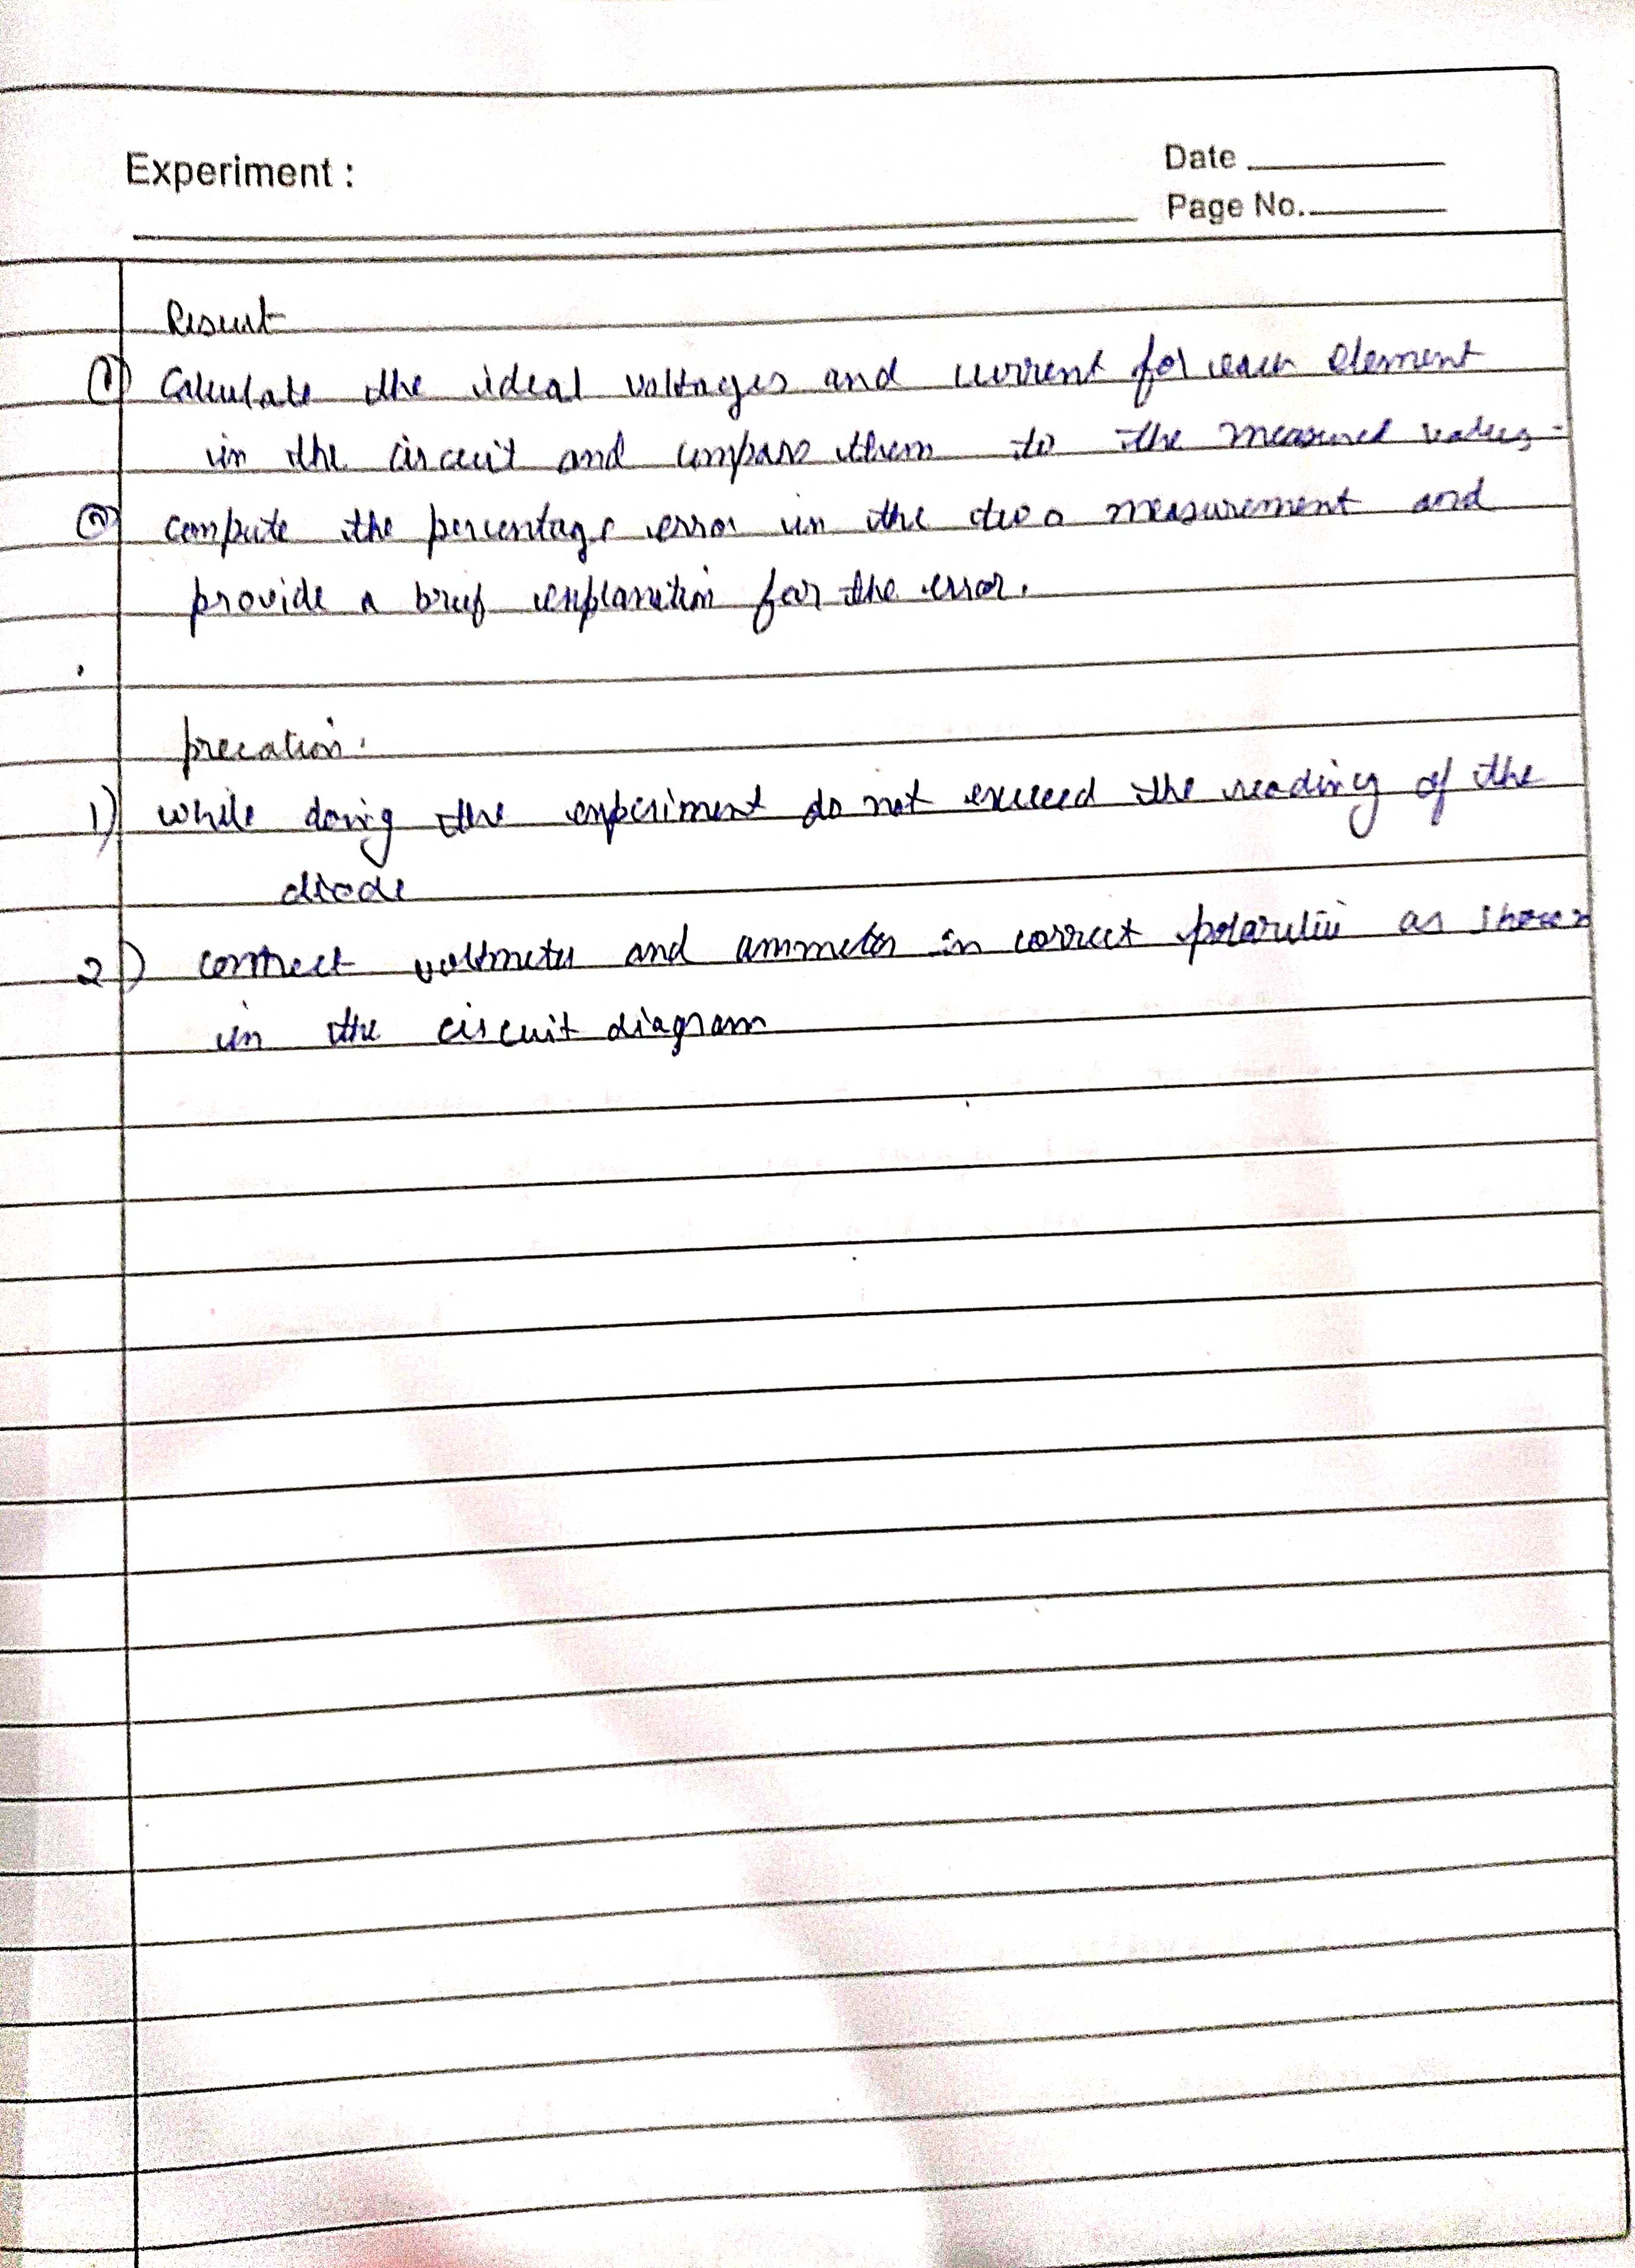 Experiment :
Date
Page No.
Result
① Calculate the ideal voltages and current for each element
in the circuit and compare them to the measured values.
② compute the percentage error in the two measurement and
provide a brief explanation for the error.
precation.
1) while doing the experiment do not exceed the reading of the
diode
2) connect voltmeter and ammeter in correct as shown
in the circuit diagram